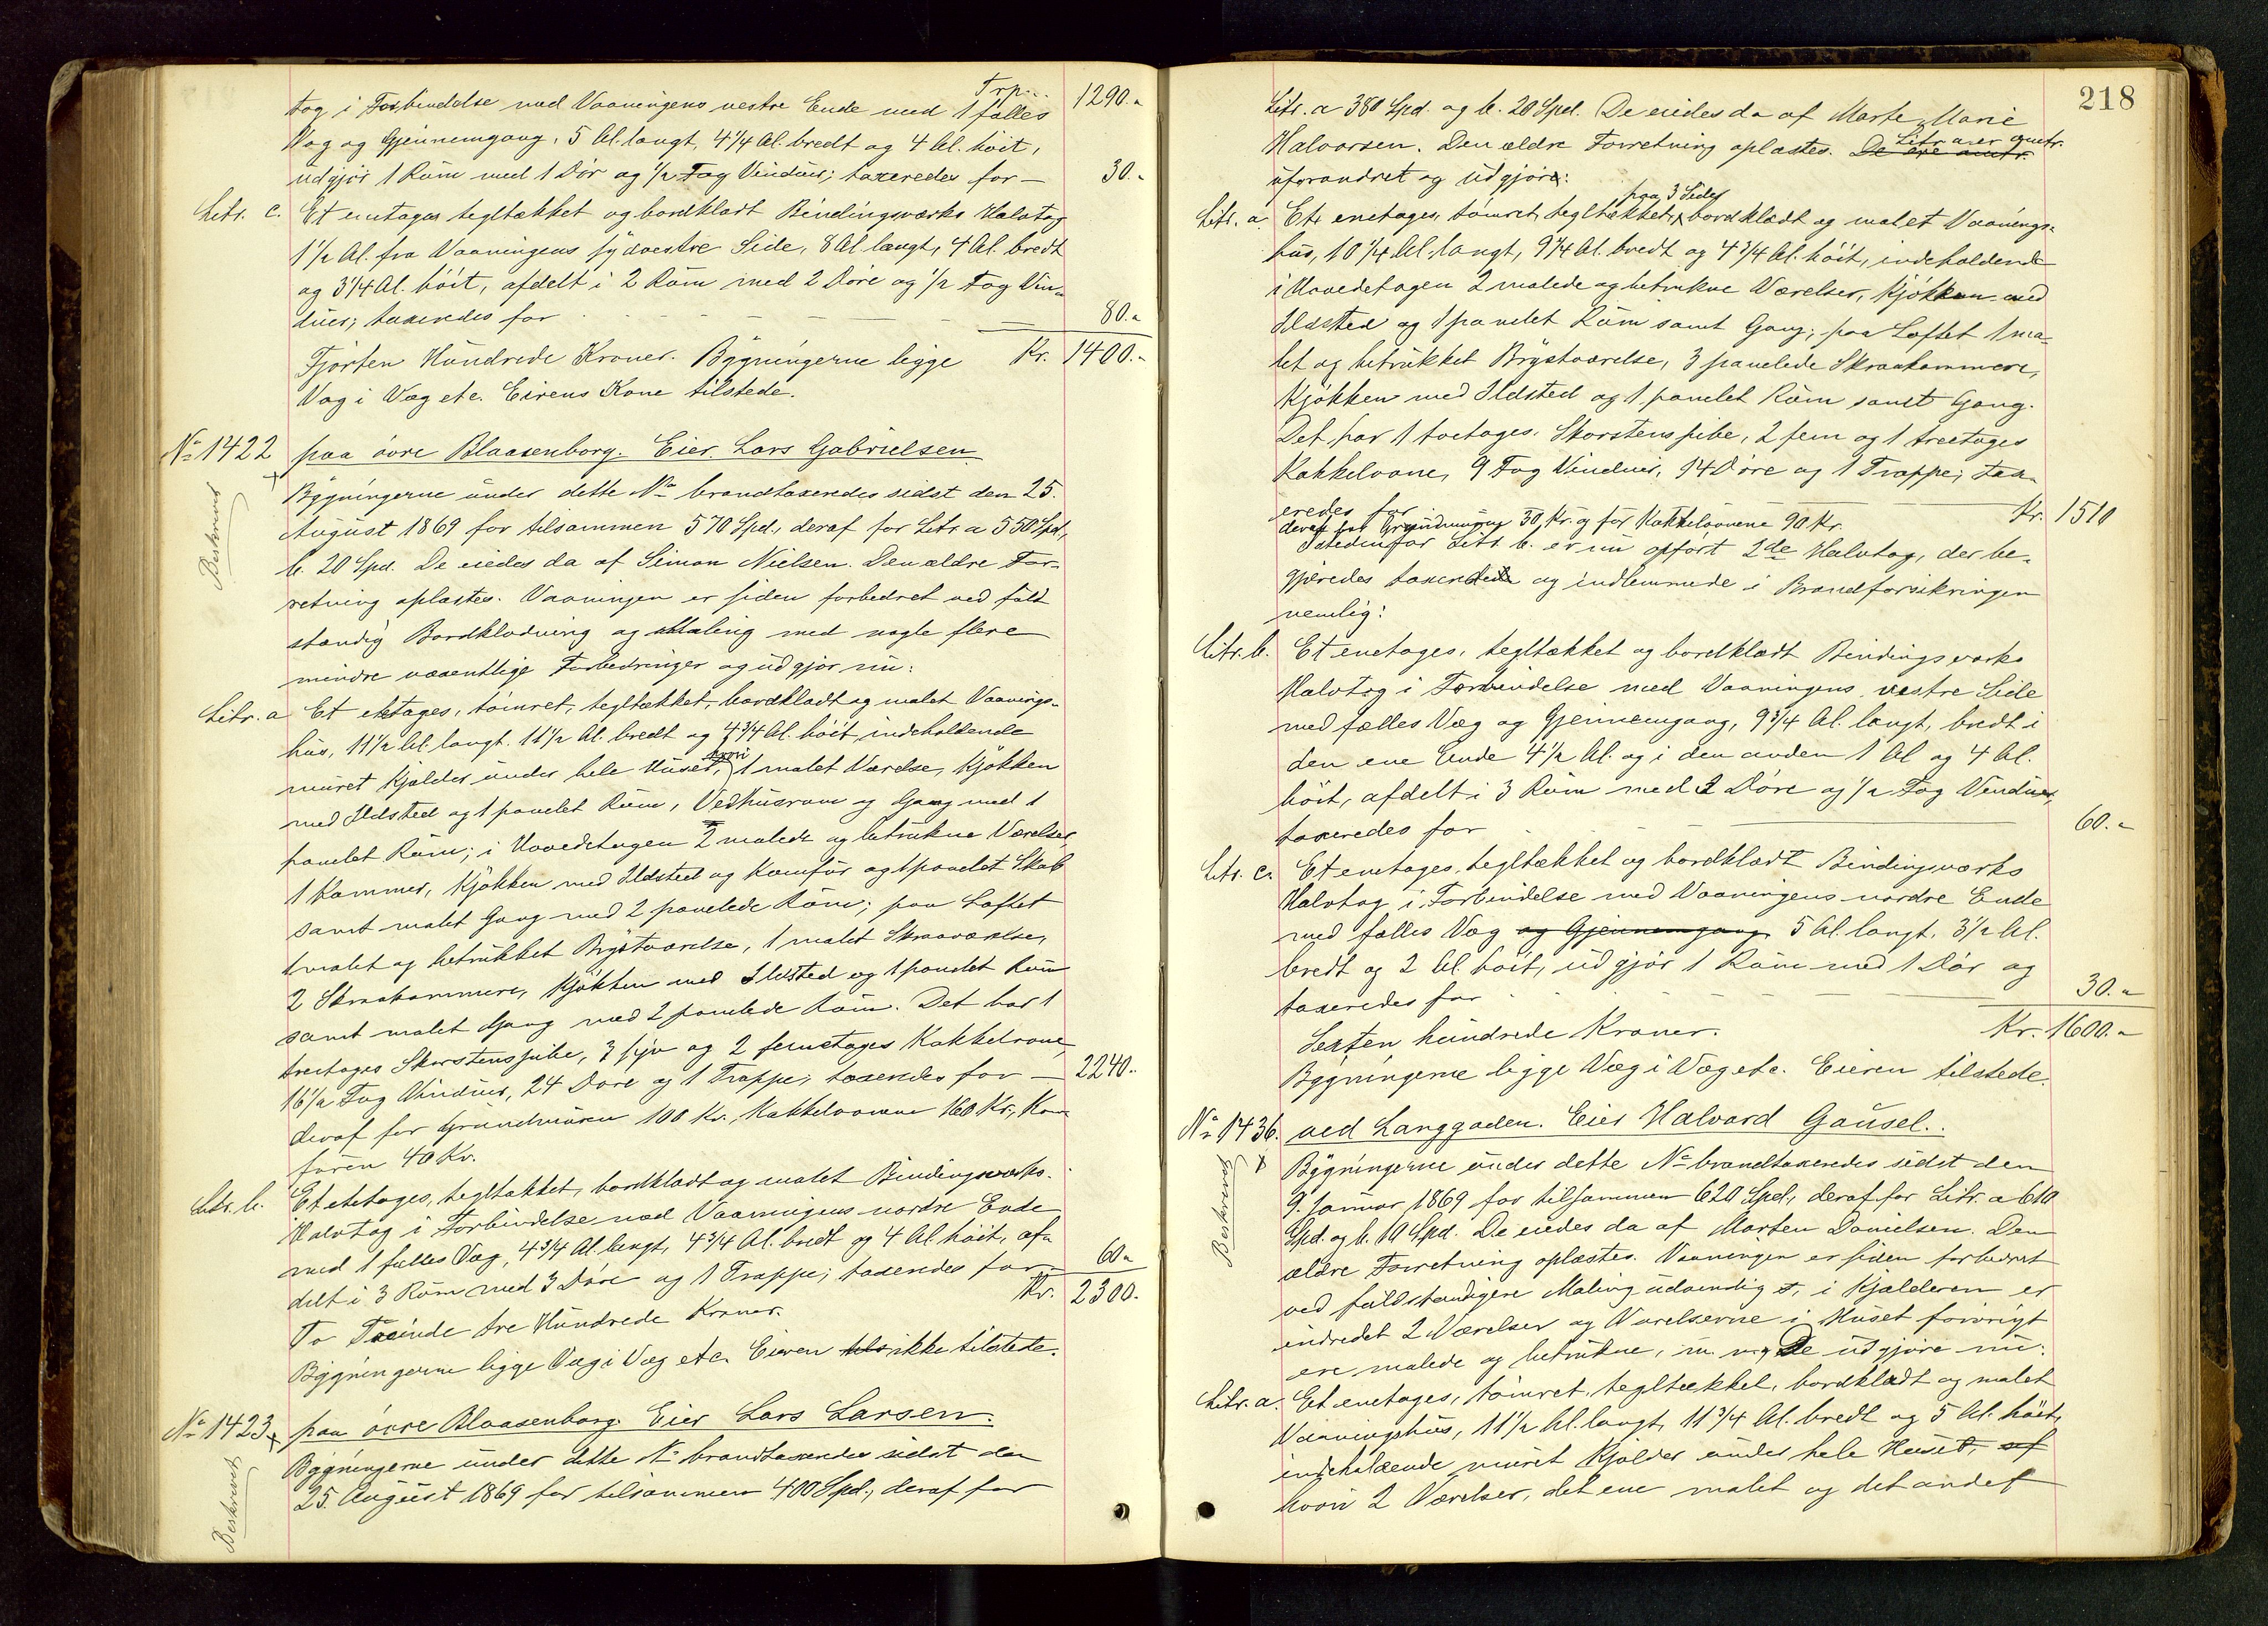 Trp... 1290.-
tag i Forbindelse med Vaaningens vestre Ende med 1 fælles
Væg og Gjennemgang, 5 Al. langt, 4 1/4 Al. bredt og 4 Al. höit,
udgjör 1 Rüm med 1 Dör og 1/2 Fag Vindüer; taxeredes for — 30.-
Litr. c. Et enetages tegltækket og bordklædt Bindingsværks Halvtag
1 1/2 Al. fra Vaaningens sydvestre Side, 8 Al. langt, 4 Al. bredt
og 3 1/4 Al. höit, afdelt i 2 Rüm med 2 Döre og 1/2 Fag Vin-
düer; taxeredes for 80.-
Fjorten Hündrede Kroner. Bÿgningerne ligge Kr. 1400.-
Væg i Væg etc. Eirens Kone tilstede.
No 1422 paa övre Blaasenborg. Eier Lars Gabrielsen
Beskrevet
Bygningerne ünder dette No brandtaxeredes sidst den 25.
Aügüst 1869 for tilsammen 570 Spd., deraf for Litr. a 550 Spd.,
b. 20 Spd. De eiedes da af Simon Nielsen. Den ældre For-
retning oplæstes. Vaaningen er siden forbedret ved füld
stændig Bordklædning og Maling med nogle flere
mindre væsentlige Forbedringer og üdgjör nü:
Litr. a Et etetages, tömret, tegltækket, bordklædt og malet Vaanings-
hüs, 11 1/2 Al. langt, 11 1/2 Al. bredt og 4 3/4 Al. höit, indeholdende
müret Kjælder ünder hele Hüset, hvori 1 malet Værelse, Kjökken
med Ildsted og 1 panelet Rüm, Vedhüsrum og Gang med 1
panelet Rüm; i Hovedetagen 2 malede og betrükne Værelser,
1 Kammer, Kjökken med Ildsted og Komfür og 1 panelet Skab
samt malet Gang med 2 panelede Rüm; paa Loftet
1 malet og betrükket Brÿstværelse, 1 malet Skraaværelse,
2 Skraakammere, Kjökken med Ildsted og 1 panelet Rüm
samt malet Gang med 2 panelede Rüm. Det har 1
treetages Skorstenspibe, 3 sjü og 2 fem etages Kakkelovne,
16 1/2 Fag Vindüer, 24 Döre og 1 Trappe; taxeredes for — 2240.-
deraf for Gründmüren 100 Kr., Kakkelovnene 160 Kr., Kom-
füren 40 Kr.
Litr. b. Et etetages, tegltækket, bordklædt og malet Bindingsværks-
Halvtag i Forbindelse med Vaaningens nordre Ende
med 1 fælles Væg, 4 3/4 Al. langt, 4 3/4 Al. bredt og 4 Al. höit, af-
delt i 3 Rüm med 3 Döre og 1 Trappe; taxeredes for 60.-
To Tüsinde tre Hündrede Kroner. Kr. 2300.-
Bÿgningerne ligge Væg i Væg etc. Eieren ikke tilstede.
No 1423 paa övre Blaasenborg. Eier Lars Larsen.
Beskrevet
Bÿgningerne ünder dette No brandtaxeredes sidst den
25. Aügüst 1869 for tilsammen 400 Spd., deraf for
218
Litr. a 380 Spd. og b. 20 Spd. De eiedes da af Marte Marie
Halvorsen. Den ældre Forretning oplæstes. De ere omtr. Litr. a er omtr.
üforandret og üdgjör:
Litr. a. Et enetages, tömret, tegltækket, paa 3 Sider bordklædt og malet Vaanings-
hüs, 10 1/4 Al. langt, 9 1/4 Al. bredt og 4 3/4 Al. höit, indeholdende
i Hovedetagen 2 malede og betrükne Værelser, Kjökken med
Ildsted og 1 panelet Rüm samt Gang; paa Loftet 1 ma-
let og betrükket Brÿstværelse, 3 panelede Skraakammere,
Kjökken med Ildsted og 1 panelet Rüm samt Gang.
Det har 1 toetages Skorstenspibe, 2 fem og 1 treetages
Kakkelovne, 9 Fag Vindüer, 14 Döre og 1 Trappe; tax-
eredes for Kr. 1510
deraf for Gründmüren 30 Kr. og for Kakkelovnene 90 Kr.
Istedenfor Litr. b. er nü opfört 2de Halvtag, der be-
gjæredes taxerede og indlemmede i Brandforsikringen
nemlig:
Litr. b. Et enetages, tegltækket og bordklædt Bindingsværks
Halvtag i Forbindelse med Vaaningens vestre Side
med fælles Væg og Gjennemgang, 9 3/4 Al. langt, bredt i
den ene Ende 4 1/2 Al. og i den anden 1 Al. og 4 Al.
höit, afdelt i 3 Rüm med 2 Döre og 1/2 Fag Vindüer,
taxeredes for 60.-
Litr. c. Et enetages, tegltækket og bordklædt Bindingsværks
Halvtag i Forbindelse med Vaaningens nordre Ende
med fælles Væg og Gjennemgang 5 Al. langt, 3 1/2 Al.
bredt og 2 Al. höit, üdgjör 1 Rüm med 1 Dör og
taxeredes for 30.-
Sexten hündrede Kroner. Kr. 1600.-
Bÿgningerne ligge Væg i Væg etc. Eieren tilstede.
No 1436. ved Langgaden. Eier Halvard Gaüsel.
Beskrevet
Bÿgningerne ünder dette No brandtaxeredes sidst den
9. Janüar 1869 for tilsammen 620 Spd., deraf for Litr. a 610
Spd. og b. 10 Spd. De eiedes da af Morten Danielsen. Den
ældre Forretning oplæstes. Vaaningen er siden forbedret
ved füldstændigere Maling üdvendig, i Kjælderen er
indredet 2 Værelser og Værelserne i Hüset forövrigt
ere malede og betrükne, m. m. De üdgjöre nü:
Litr. a. Et enetages, tömret, tegltækket, bordklædt og malet
Vaaningshüs, 11 1/2 Al. langt, 11 3/4 Al. bredt og 5 Al. höit,
indeholdende müret Kjælder ünder hele Hüset,
hvori 2 Værelser, det ene malet og det andet